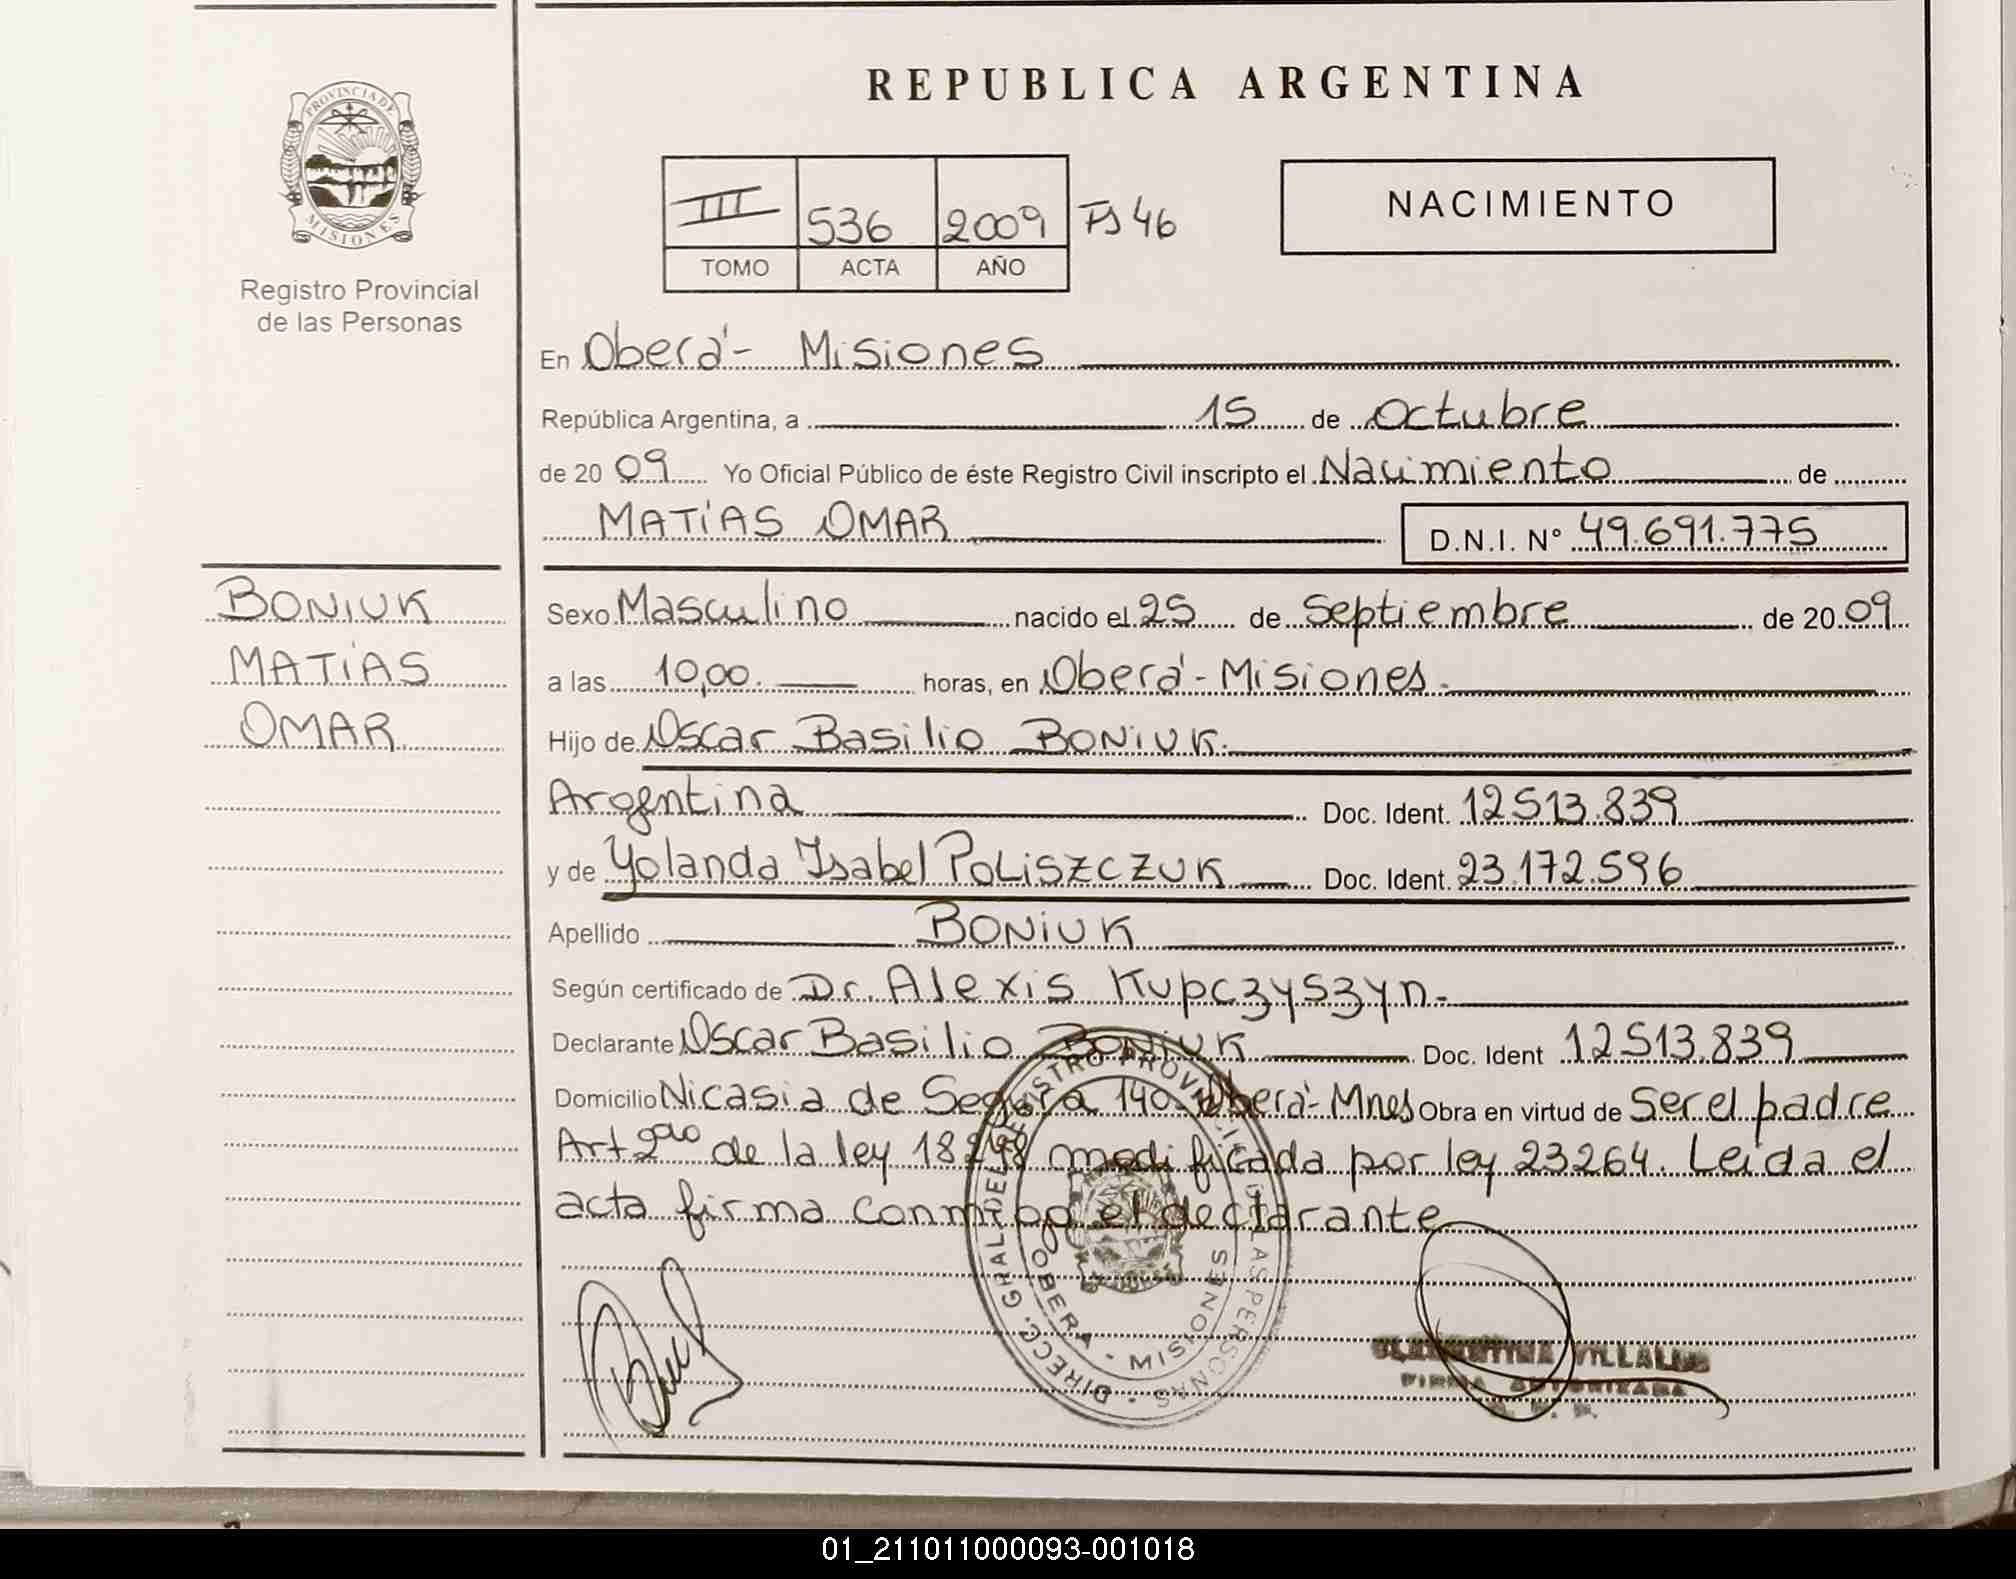 REPUBLICA ARGENTINA
PROVINCIA DE
MISIONES
Registro Provincial
de las Personas
III 536 2009 FS 46
TOMO ACTA AÑO
NACIMIENTO
En Oberá - Misiones
República Argentina, a 15 de Octubre
de 20 09 Yo Oficial Público de éste Registro Civil inscripto el Nacimiento de
MATÍAS OMAR D.N.I. N° 49.691.775
BONIUK
MATÍAS
OMAR
Sexo Masculino nacido el 25 de Septiembre de 20 09
a las 10,00. horas, en Oberá - Misiones.
Hijo de Oscar Basilio BONIUK.
Argentina Doc. Ident. 12513.839
y de Yolanda Isabel POLISZCZUK Doc. Ident. 23.172.596
Apellido BONIUK
Según certificado de Dr. Alexis Kupczyszyn.
Declarante Oscar Basilio BONIUK Doc. Ident 12513.839
Domicilio Nicasia de Segura 140 - Oberá - Mnes Obra en virtud de Ser el padre
Art 2do de la ley 18248 modificada por ley 23264. Leída el
acta firma conmigo el declarante
DIRECC. GRAL DEL REGISTRO PROVINCIAL DE LAS PERSONAS
OBERA - MISIONES
VILLALBA
FIRMA AUTORIZADA
01_211011000093-001018